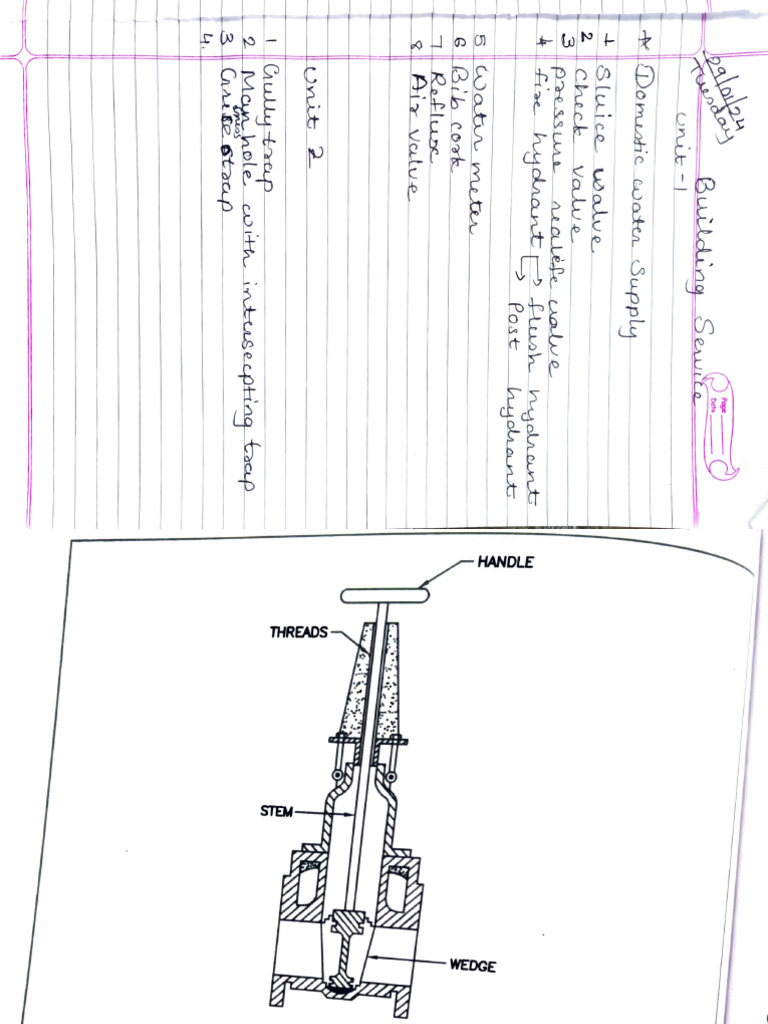 Page
Date
29/01/24
Tuesday
Building Service
Unit-1
* Domestic water Supply
1 Sluice valve
2 check valve
3 pressure realife valve
4 fire hydrant → flush hydrant
→ Post hydrant
5 Water meter
6 Bib cork
7 Reflux
8 Air valve
Unit 2
1 Gully trap
2 Manhole with intersecpting trap
3 trap
4.
HANDLE
THREADS
STEM
WEDGE